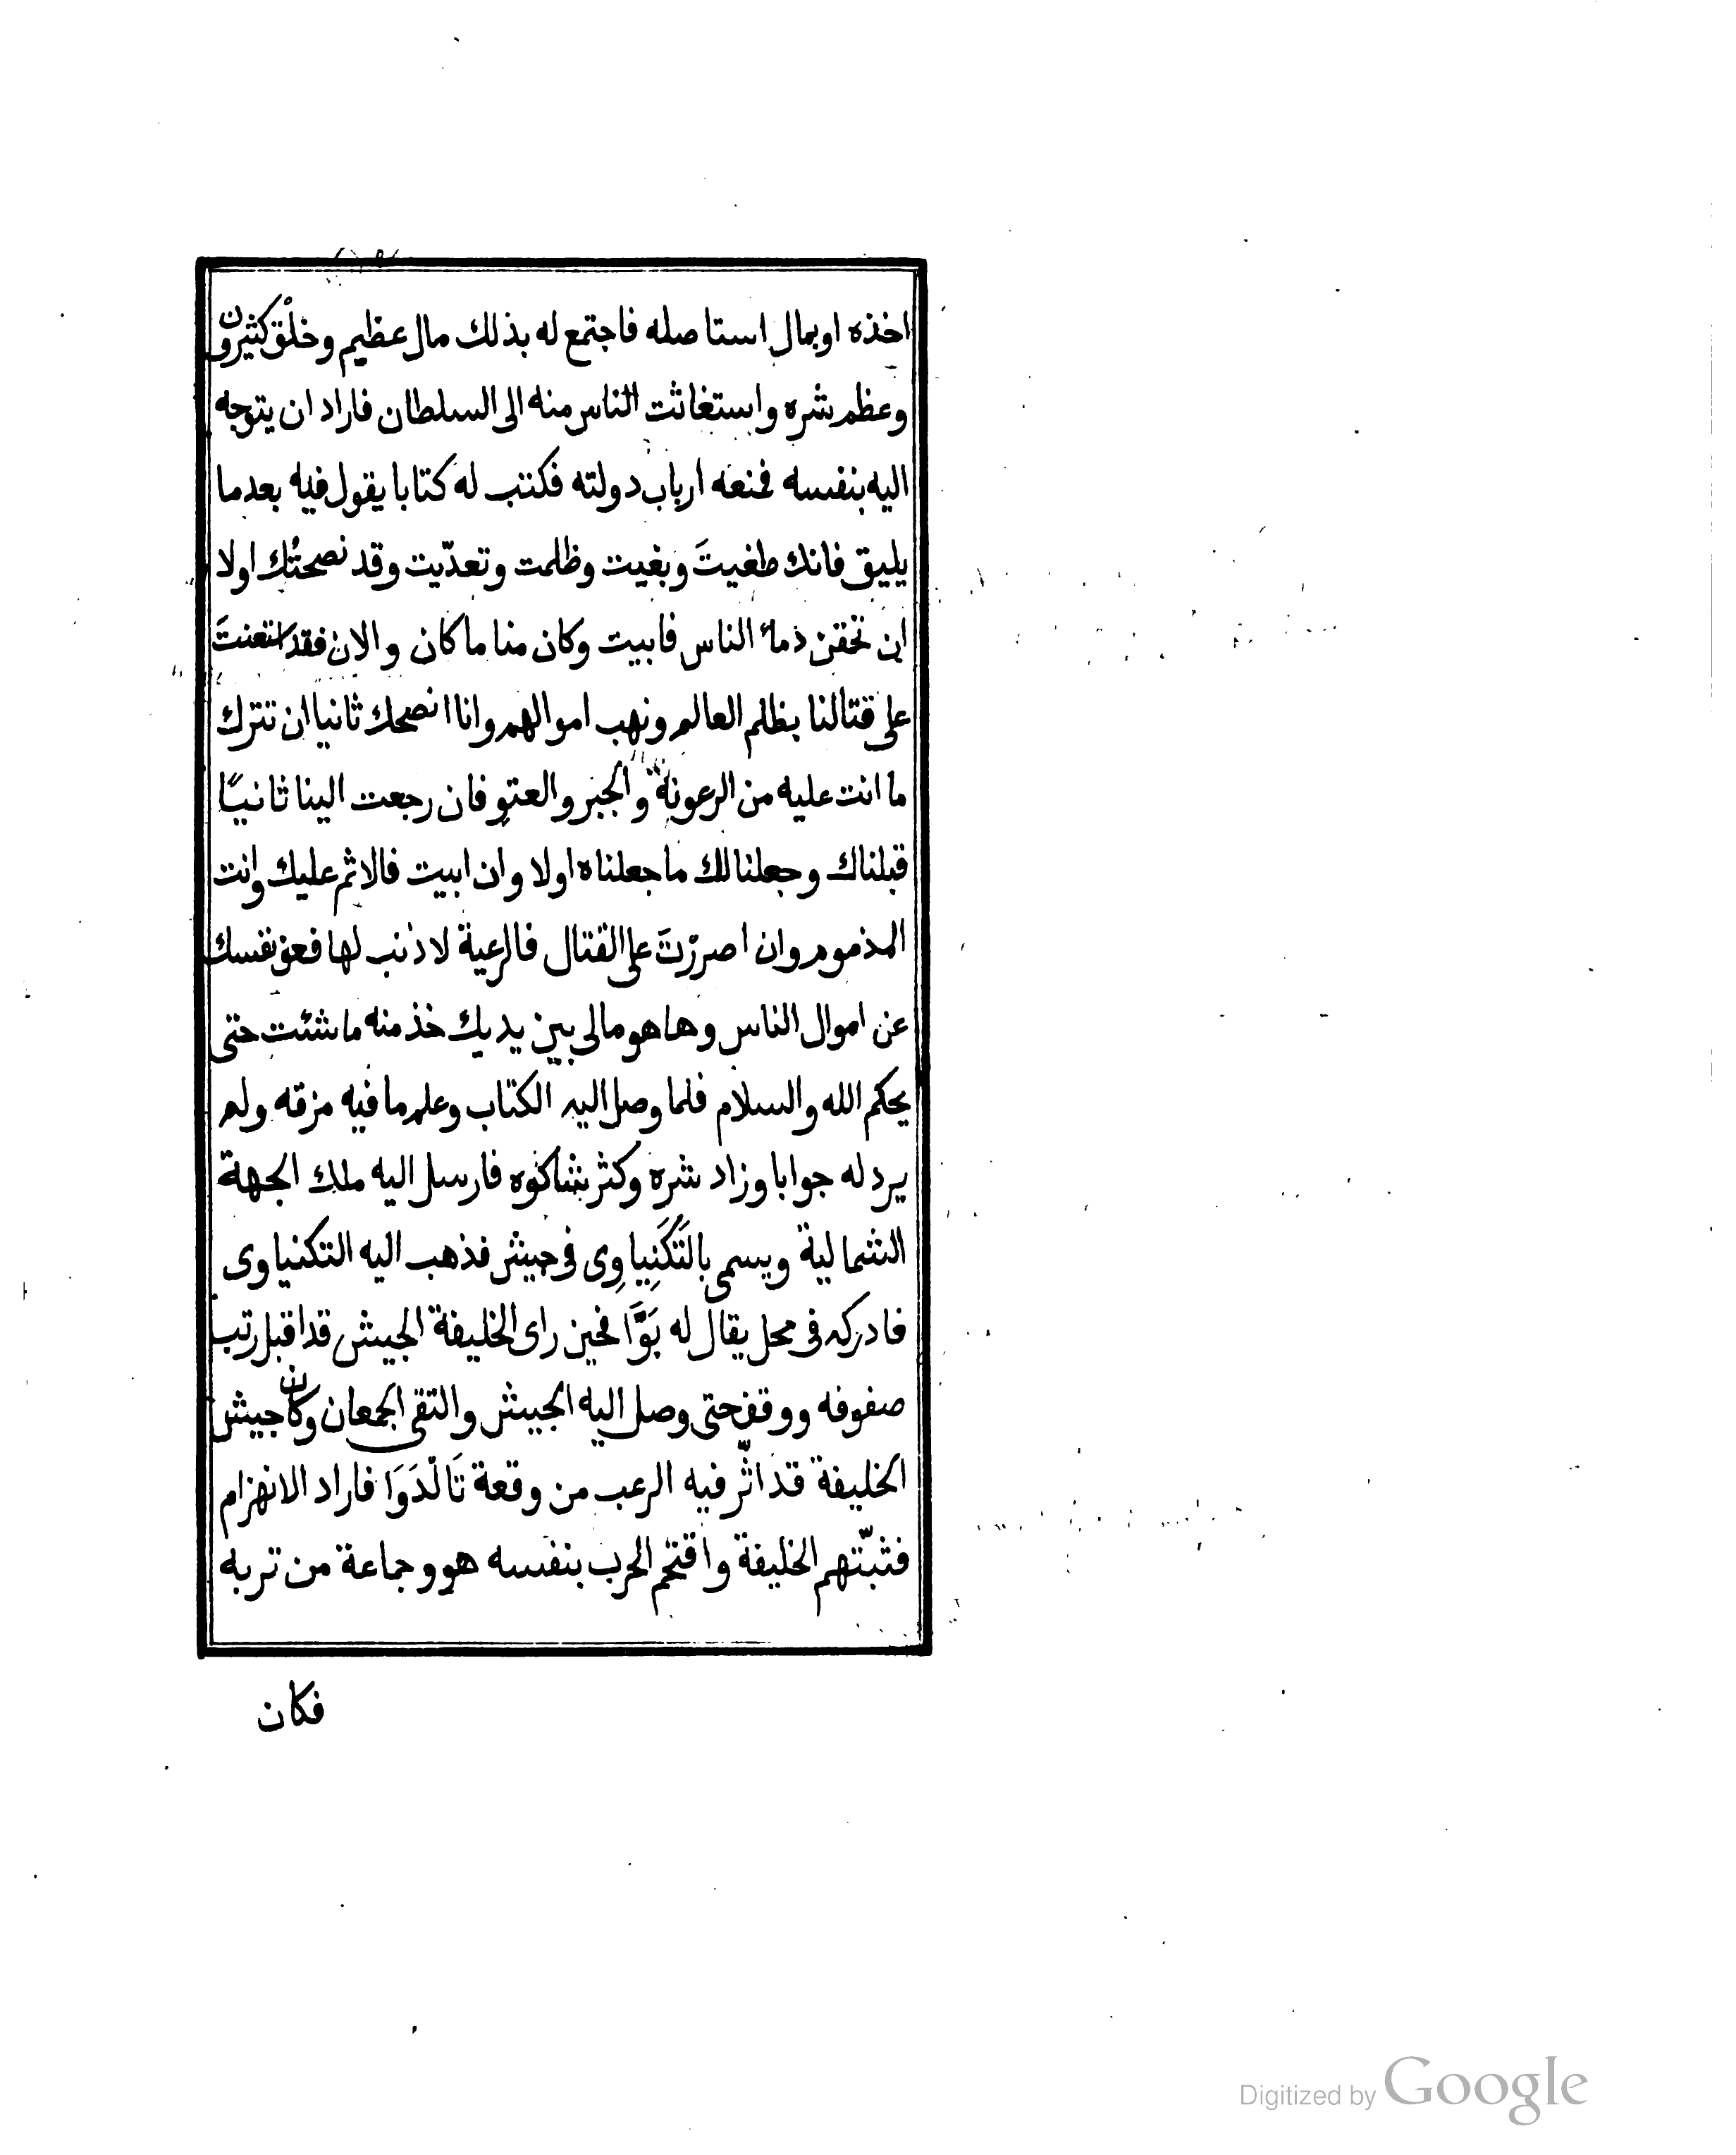 اخذه اوبمال استاصله فاجتمع له بذلك مال عظيم وخلْق كثيرون
وعظم شره واستغاثت الناس منه الى السلطان فاراد ان يتوجه
اليه بنفسه فمنعه ارباب دولته فكتب له كتابا يقول فيه بعدما
يليق فانك طغيتَ وبغيت وظلمت وتعدّيت وقد نصحتُك اولا
ان تحقن دماء الناس فابيت وكان منا ما كان والان فقد استعنتَ
على قتالنا بظلم العالم ونهب اموالهم وانا انصحك ثانيا ان تترك
ما انت عليه من الرعونة والجبر والعتو فان رجعت الينا ثانيًا
قبلناك وجعلنا لك ما جعلناه اولا وان ابيت فالاثم عليك وانت
المذموم وان اصررْتَ على القتال فالرعية لا ذنب لها فعف نفسك
عن اموال الناس وها هو مالى بين يديك خذ منه ما شئت حتى
يحكم الله والسلام فلما وصل اليه الكتاب وعلم ما فيه مزقه ولم
يرد له جوابا وزاد شره وكثر شاكوه فارسل اليه ملك الجهة
الشمالية ويسمى بالتَكَنِياوِى فى جيش فذهب اليه التكنياوى
فادركه فى محل يقال له بَوَّا فحين راى الخليفة الجيش قد اقبل رتب
صفوفه ووقف حتى وصل اليه الجيش والتقى الجمعان وكان جيش
الخليفة قد اثّر فيه الرعب من وقعة تَالْدَوَا فاراد الانهزام
فثبّتهم الخليفة واقتحم الحرب بنفسه هو وجماعة من تربه
فكان
Digitized by Google